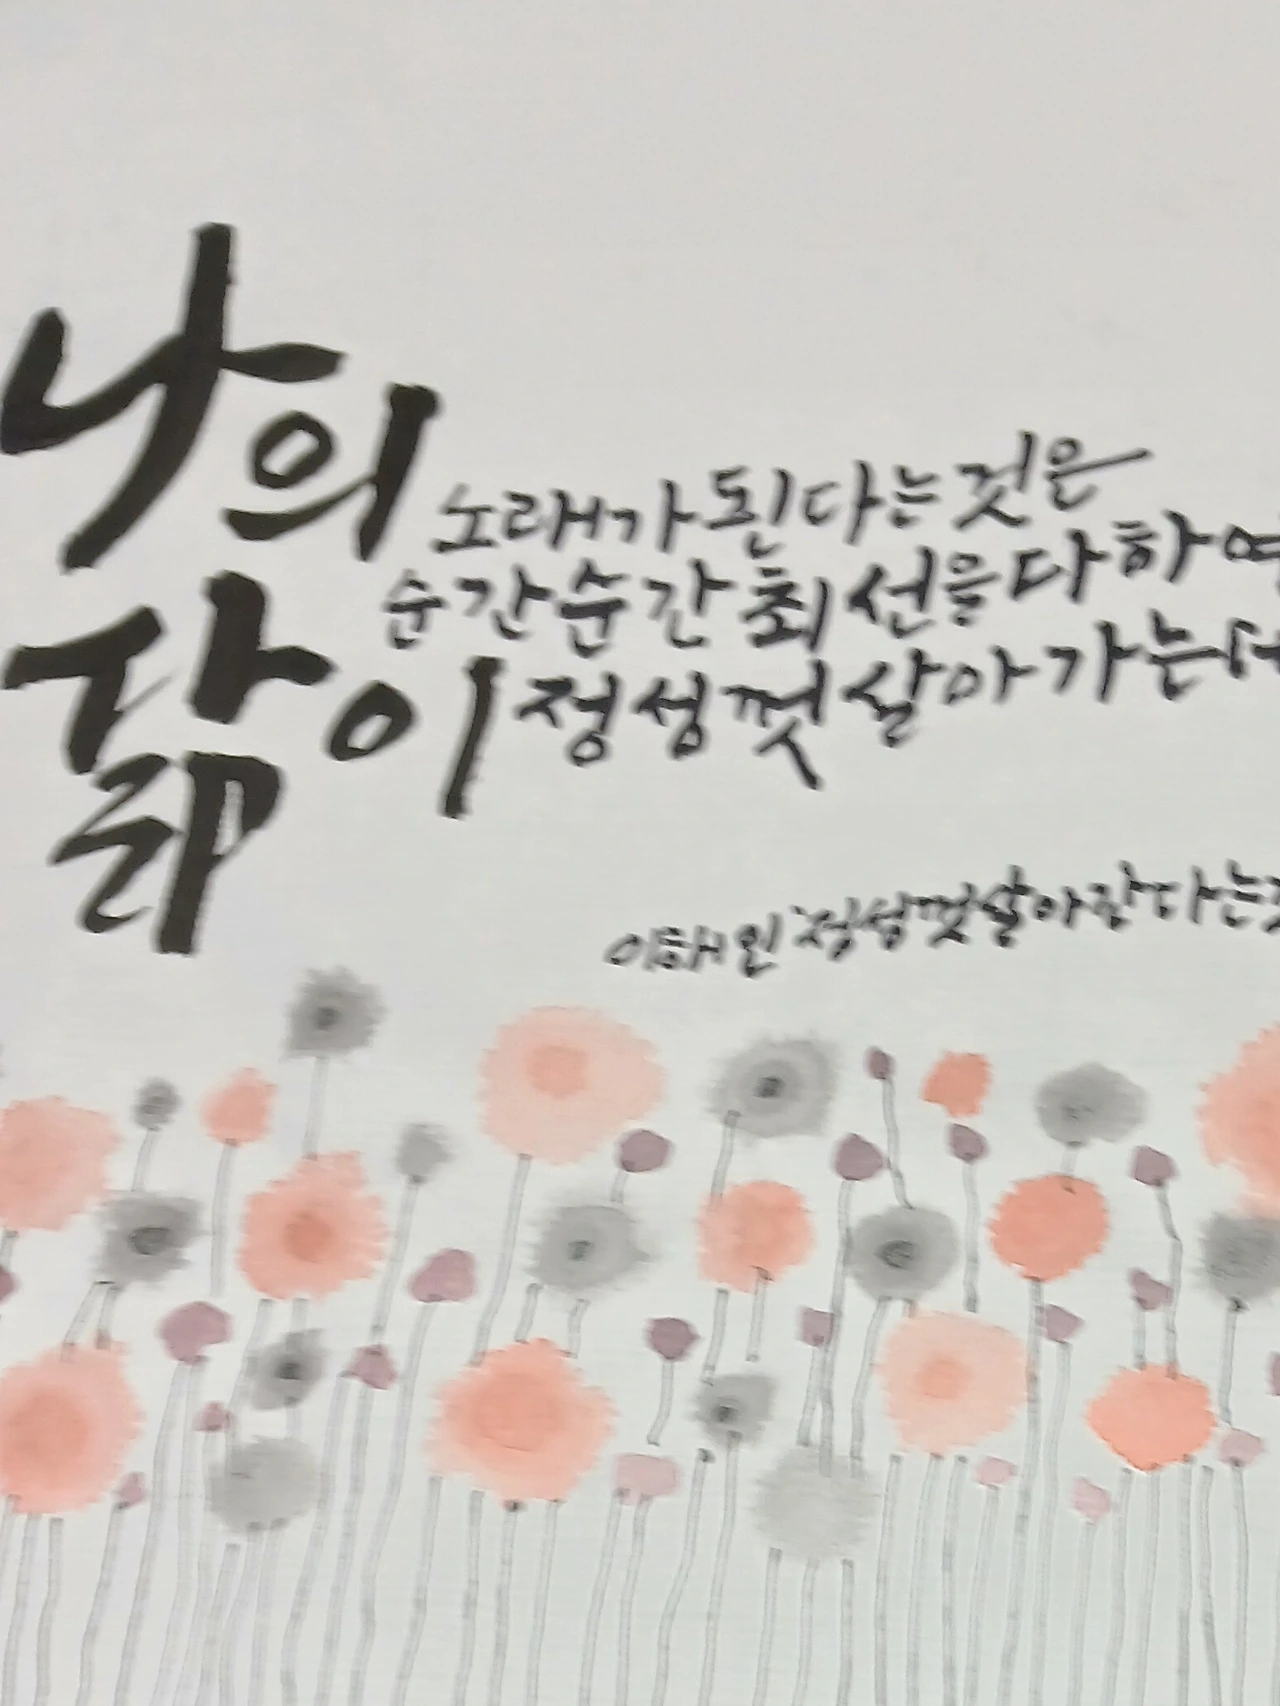 나의
삶이
노래가 된다는 것은
순간순간 최선을 다하여
정성껏 살아가는
이해인 '정성껏 살아간다는